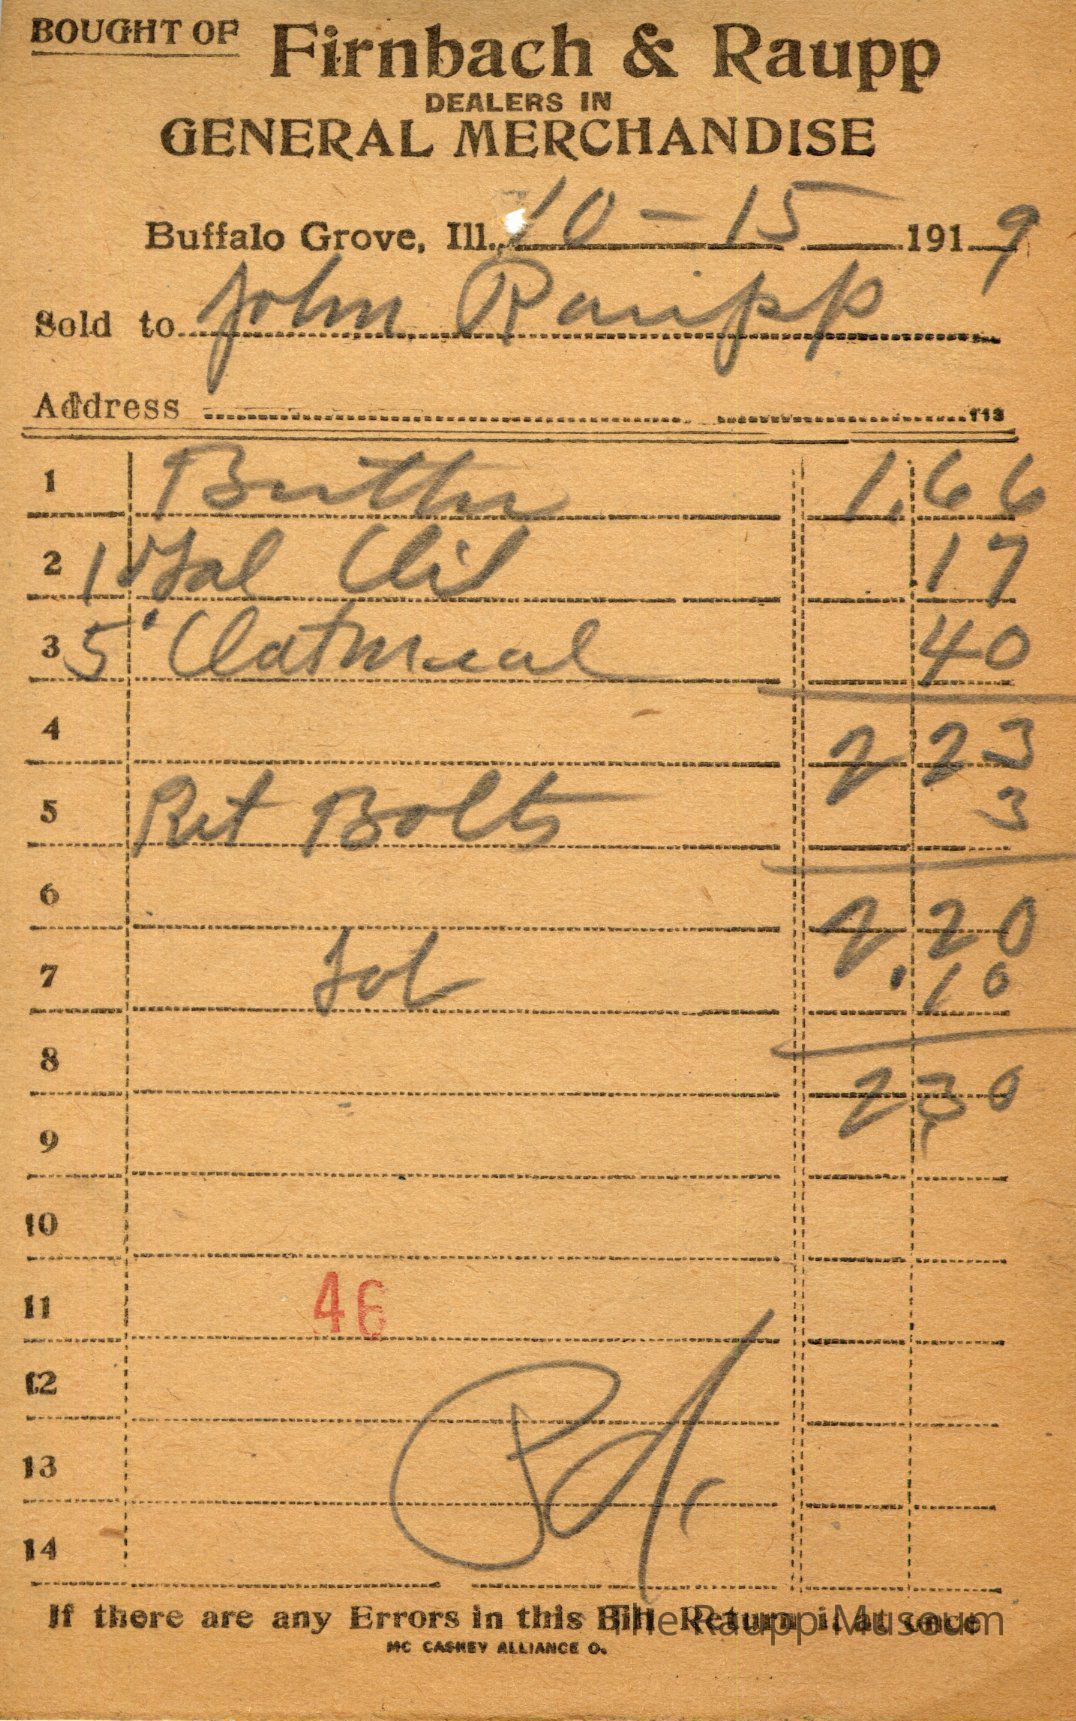 BOUGHT OF Firnbach & Raupp
DEALERS IN
GENERAL MERCHANDISE
Buffalo Grove, Ill., 10-15 1919
Sold to John Raupp
Address 113
1 Butter 1.66
2 1 Gal Oil .17
3 5 Oatmeal 40
4 2 23
5 Ret Bolts 3
6 2.20
7 Tob .10
8 2 30
9
10
11 46
12
13 Pd.
14
If there are any Errors in this Bill Return it at once
The Raupp Museum
MC CASKEY ALLIANCE O.